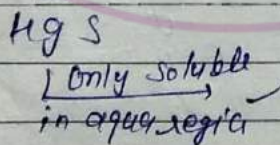 Hg S
Only Soluble
in aqua regia